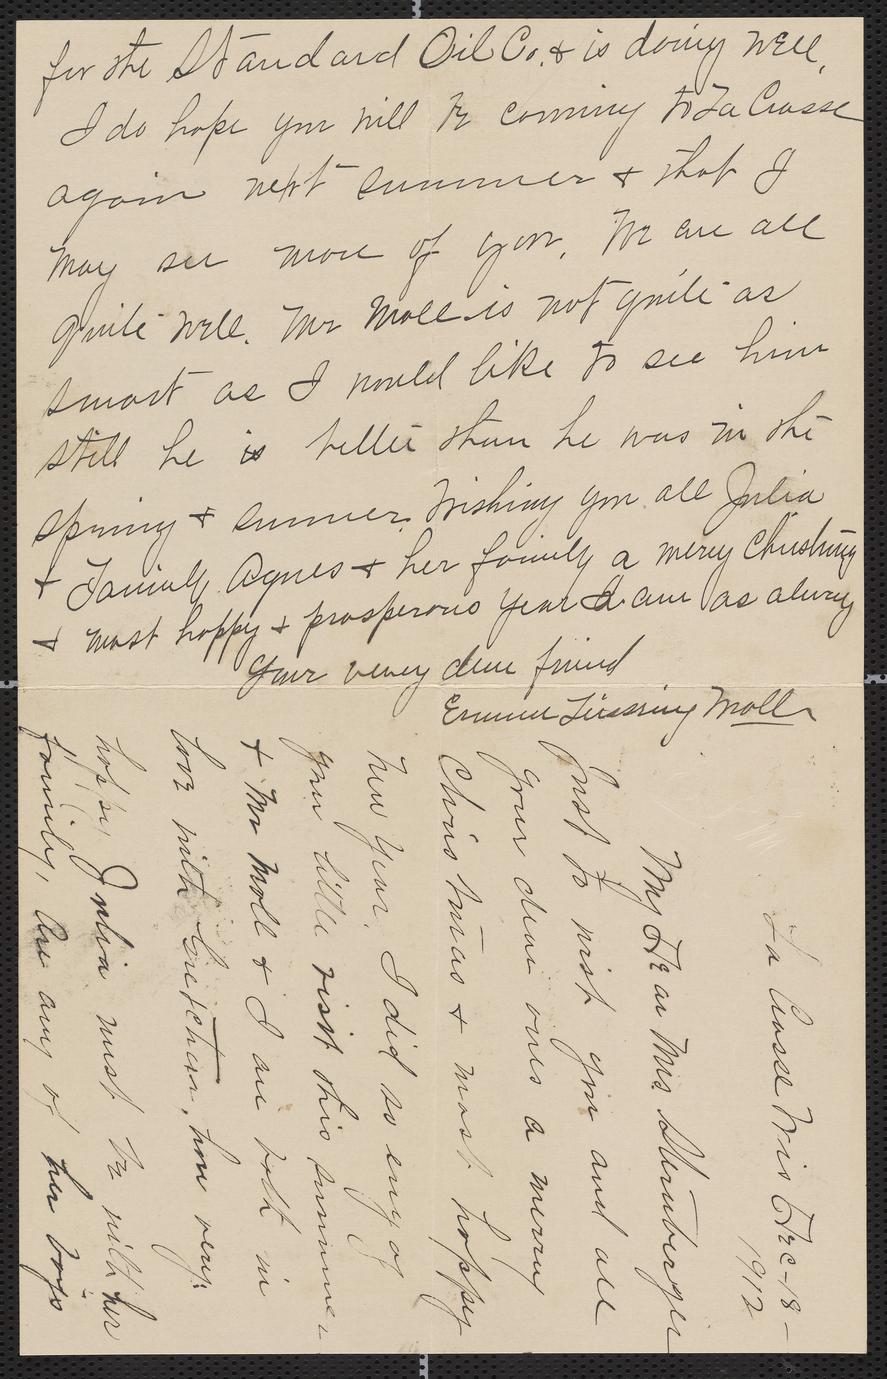 for the Standard Oil Co. & is doing well.
I do hope you will be coming to La Crosse
again next summer & that I
may see more of you. We are all
quite well. Mr Moll is not quite as
smart as I would like to see him
still he is better than he was in the
spring & summer. Wishing you all Julia
& Family Agnes & her family a merry Christmas
& most happy & prosperous year I am as always
Your very dear friend
Emma Luening Moll
La Crosse Wis Dec-18-
1912
My Dear Mrs. Sternberger
Just to wish you and all
your dear ones a merry
Christmas & most happy
New Year. I did so enjoy
your little visit this summer
& Mr Moll & I are both in
love with Gretchen, how very
happy Julia must be with her
family, are any of her boys